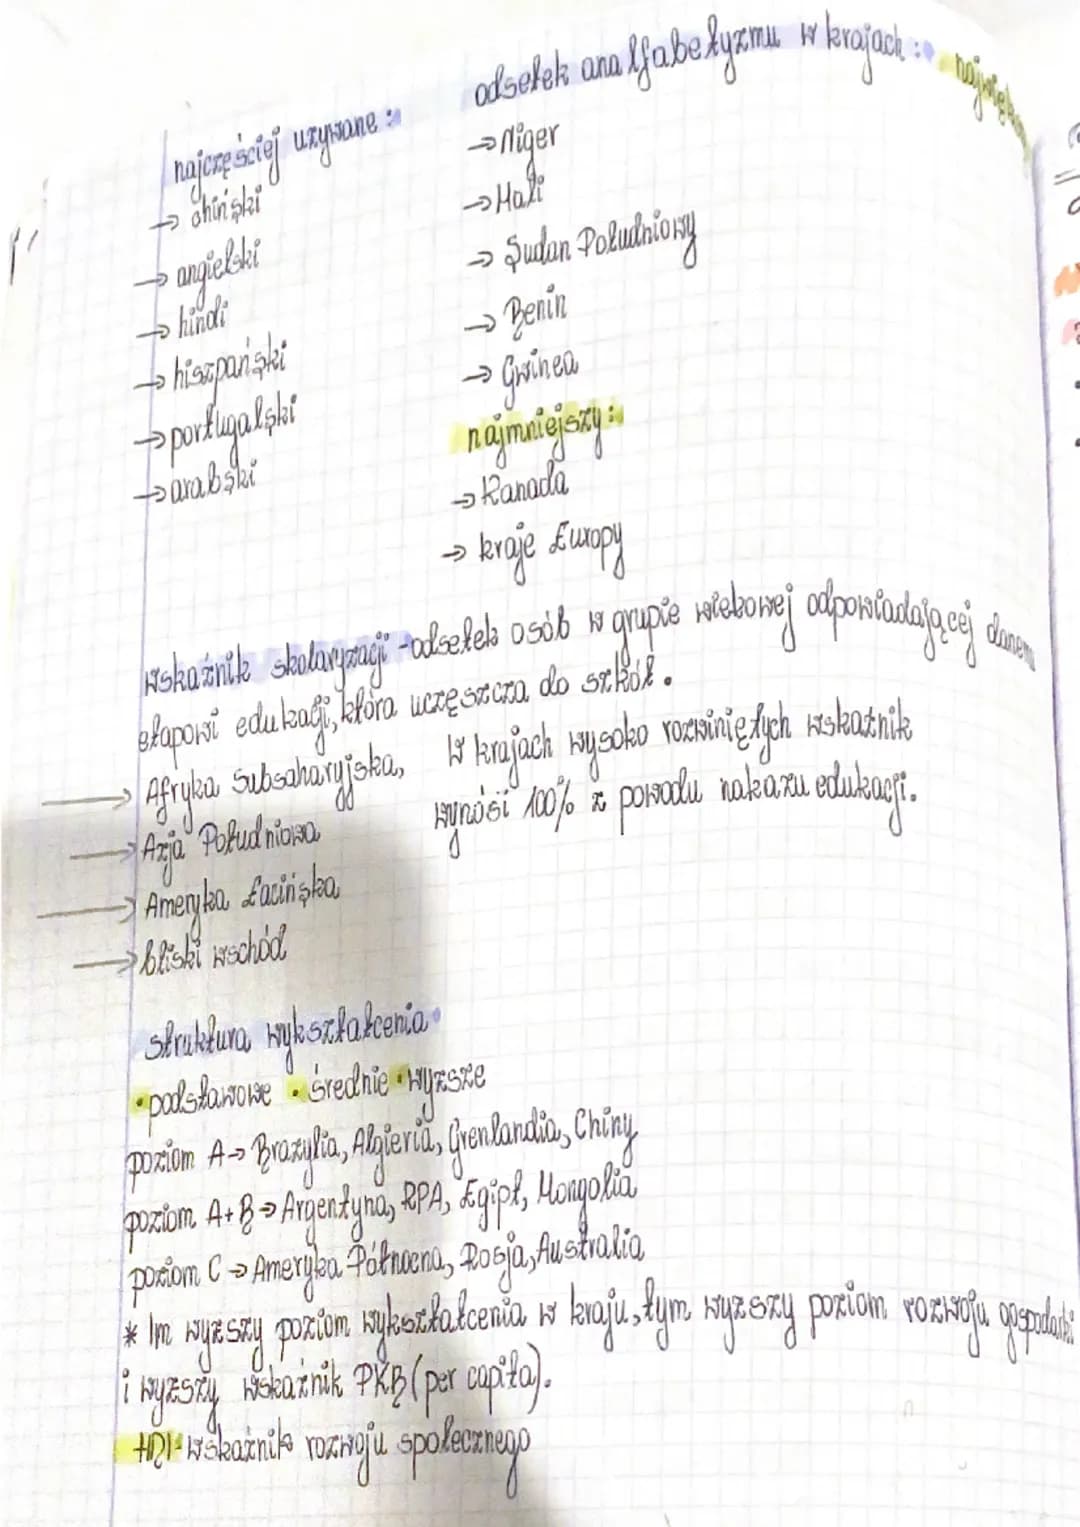 najczęściej używane:
→ chiński
→ angielski
→ hindi
→ hiszpański
→ portugalski
→ arabski
odsetek analfabetyzmu w krajach:
→ Niger
→ Mali
→ Sudan Południowy
→ Benin
→ Gwinea
najmniejszy:
→ Kanada
→ kraje Europy
wskaźnik skolaryzacji - odsetek osób w grupie wiekowej odpowiadającej danemu
etapowi edukacji, która uczęszcza do szkół.
→ Afryka Subsaharyjska,
→ Azja Południowa
→ Ameryka Łacińska
→ bliski wschód
W krajach wysoko rozwiniętych wskaźnik
wynosi 100% z powodu nakazu edukacji.
struktura wykształcenia
• podstawowe • średnie • wyższe
poziom A → Brazylia, Algieria, Grenlandia, Chiny
poziom A+B → Argentyna, RPA, Egipt, Mongolia
poziom C → Ameryka Północna, Rosja, Australia
* Im wyższy poziom wykształcenia w kraju, tym wyższy poziom rozwoju gospodarki
i wyższy wskaźnik PKB (per capita).
HDI - wskaźnik rozwoju społecznego